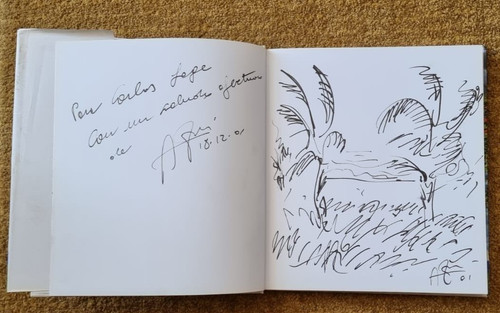 Para Carlos Lope
Con un saludo afectuoso
de
18.12.01
01